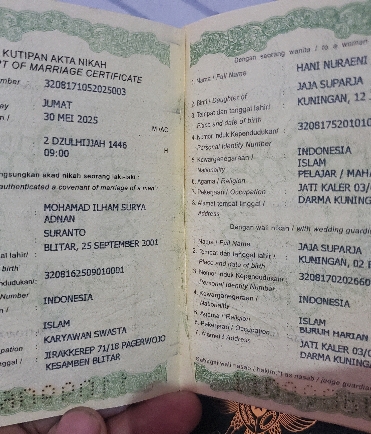 KUTIPAN AKTA NIKAH
PT OF MARRIAGE CERTIFICATE
mber : 3208171052025003
ay : JUMAT
30 MEI 2025
M/AD
2 DZULHIJJAH 1446
09:00
H
ngsungkan akad nikah seorang laki-laki :
authenticated a covenant of marriage of a man :
MOHAMAD ILHAM SURYA
ADNAN
SURANTO
al lahir/ : BLITAR, 25 SEPTEMBER 2001
birth
dudukan/ : 3208162509010001
Number
INDONESIA
ISLAM
KARYAWAN SWASTA
pation
nggal / : JIRAKKEREP 71/18 PAGERWOJO
KESAMBEN BLITAR
Dengan seorang wanita / to a woman
1. Nama / Full Name : HANI NURAENI
2. Binti / Daughter of : JAJA SUPARJA
3. Tempat dan tanggal lahir/ : KUNINGAN, 12
Place and date of birth
4. Nomor Induk Kependudukan/ : 320817520101
Personal Identity Number
5. Kewarganegaraan / : INDONESIA
Nationality
6. Agama / Religion : ISLAM
7. Pekerjaan / Occupation : PELAJAR / MAHA
8. Alamat tempat tinggal / : JATI KALER 03/
Address
DARMA KUNING
Dengan wali nikah / with wedding guardi
Nama / Full Name : JAJA SUPARJA
2. Tempat dan tanggal lahir/ : KUNINGAN, 02
Place and date of birth
3. Nomor Induk Kependudukan/ : 3208170202660
Personal Identity Number
4. Kewarganegaraan / : INDONESIA
Nationality
5. Agama / Religion : ISLAM
6. Pekerjaan / Occupation : BURUH HARIAN
7. Alamat / Address : JATI KALER 03/
DARMA KUNING
Sebagai wali nasab / hakim